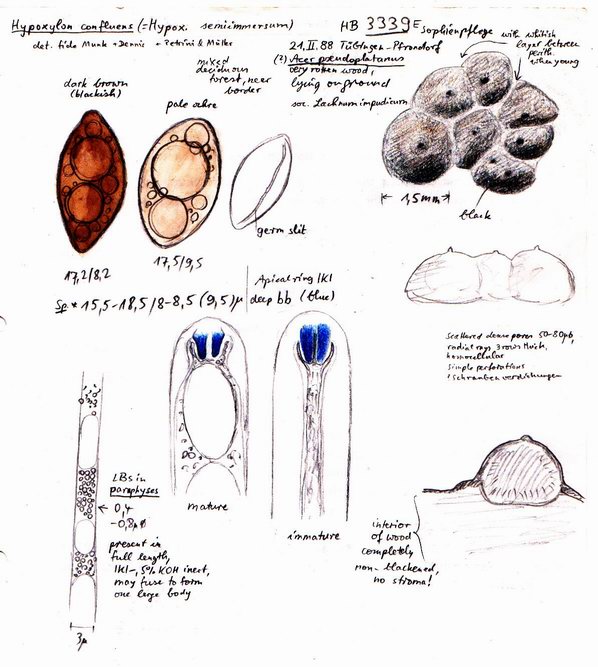 Hypoxylon confluens (= Hypox. semiimmersum)
det. fide Munk + Dennis + Petrini & Müller
HB 3339E Sophienpflege
21.II.88 Tübingen-Pfrondorf
(?) Acer pseudoplatanus
very rotten wood,
lying on ground
soc. Lachnum impudicum
mixed
deciduous
forest, near
border
with whitish
layer between
perith.
when young
dark brown
(blackish)
pale ochre
germ slit
1,5mm
black
17,2/8,2
17,5/9,5
Sp * 15,5-18,5/8-8,5 (9,5) µ
Apical ring IKI
deep bb (blue)
scattered dense pores 50-80µ,
radial rays 3 rows thick,
homocellular
simple perforations
LBs in
paraphyses
0,4
-0,8µ ø
present in
full length,
IKI-, 5% KOH inert,
may fuse to form
one large body
3µ
mature
immature
interior
of wood
completely
non-blackened,
no stroma!